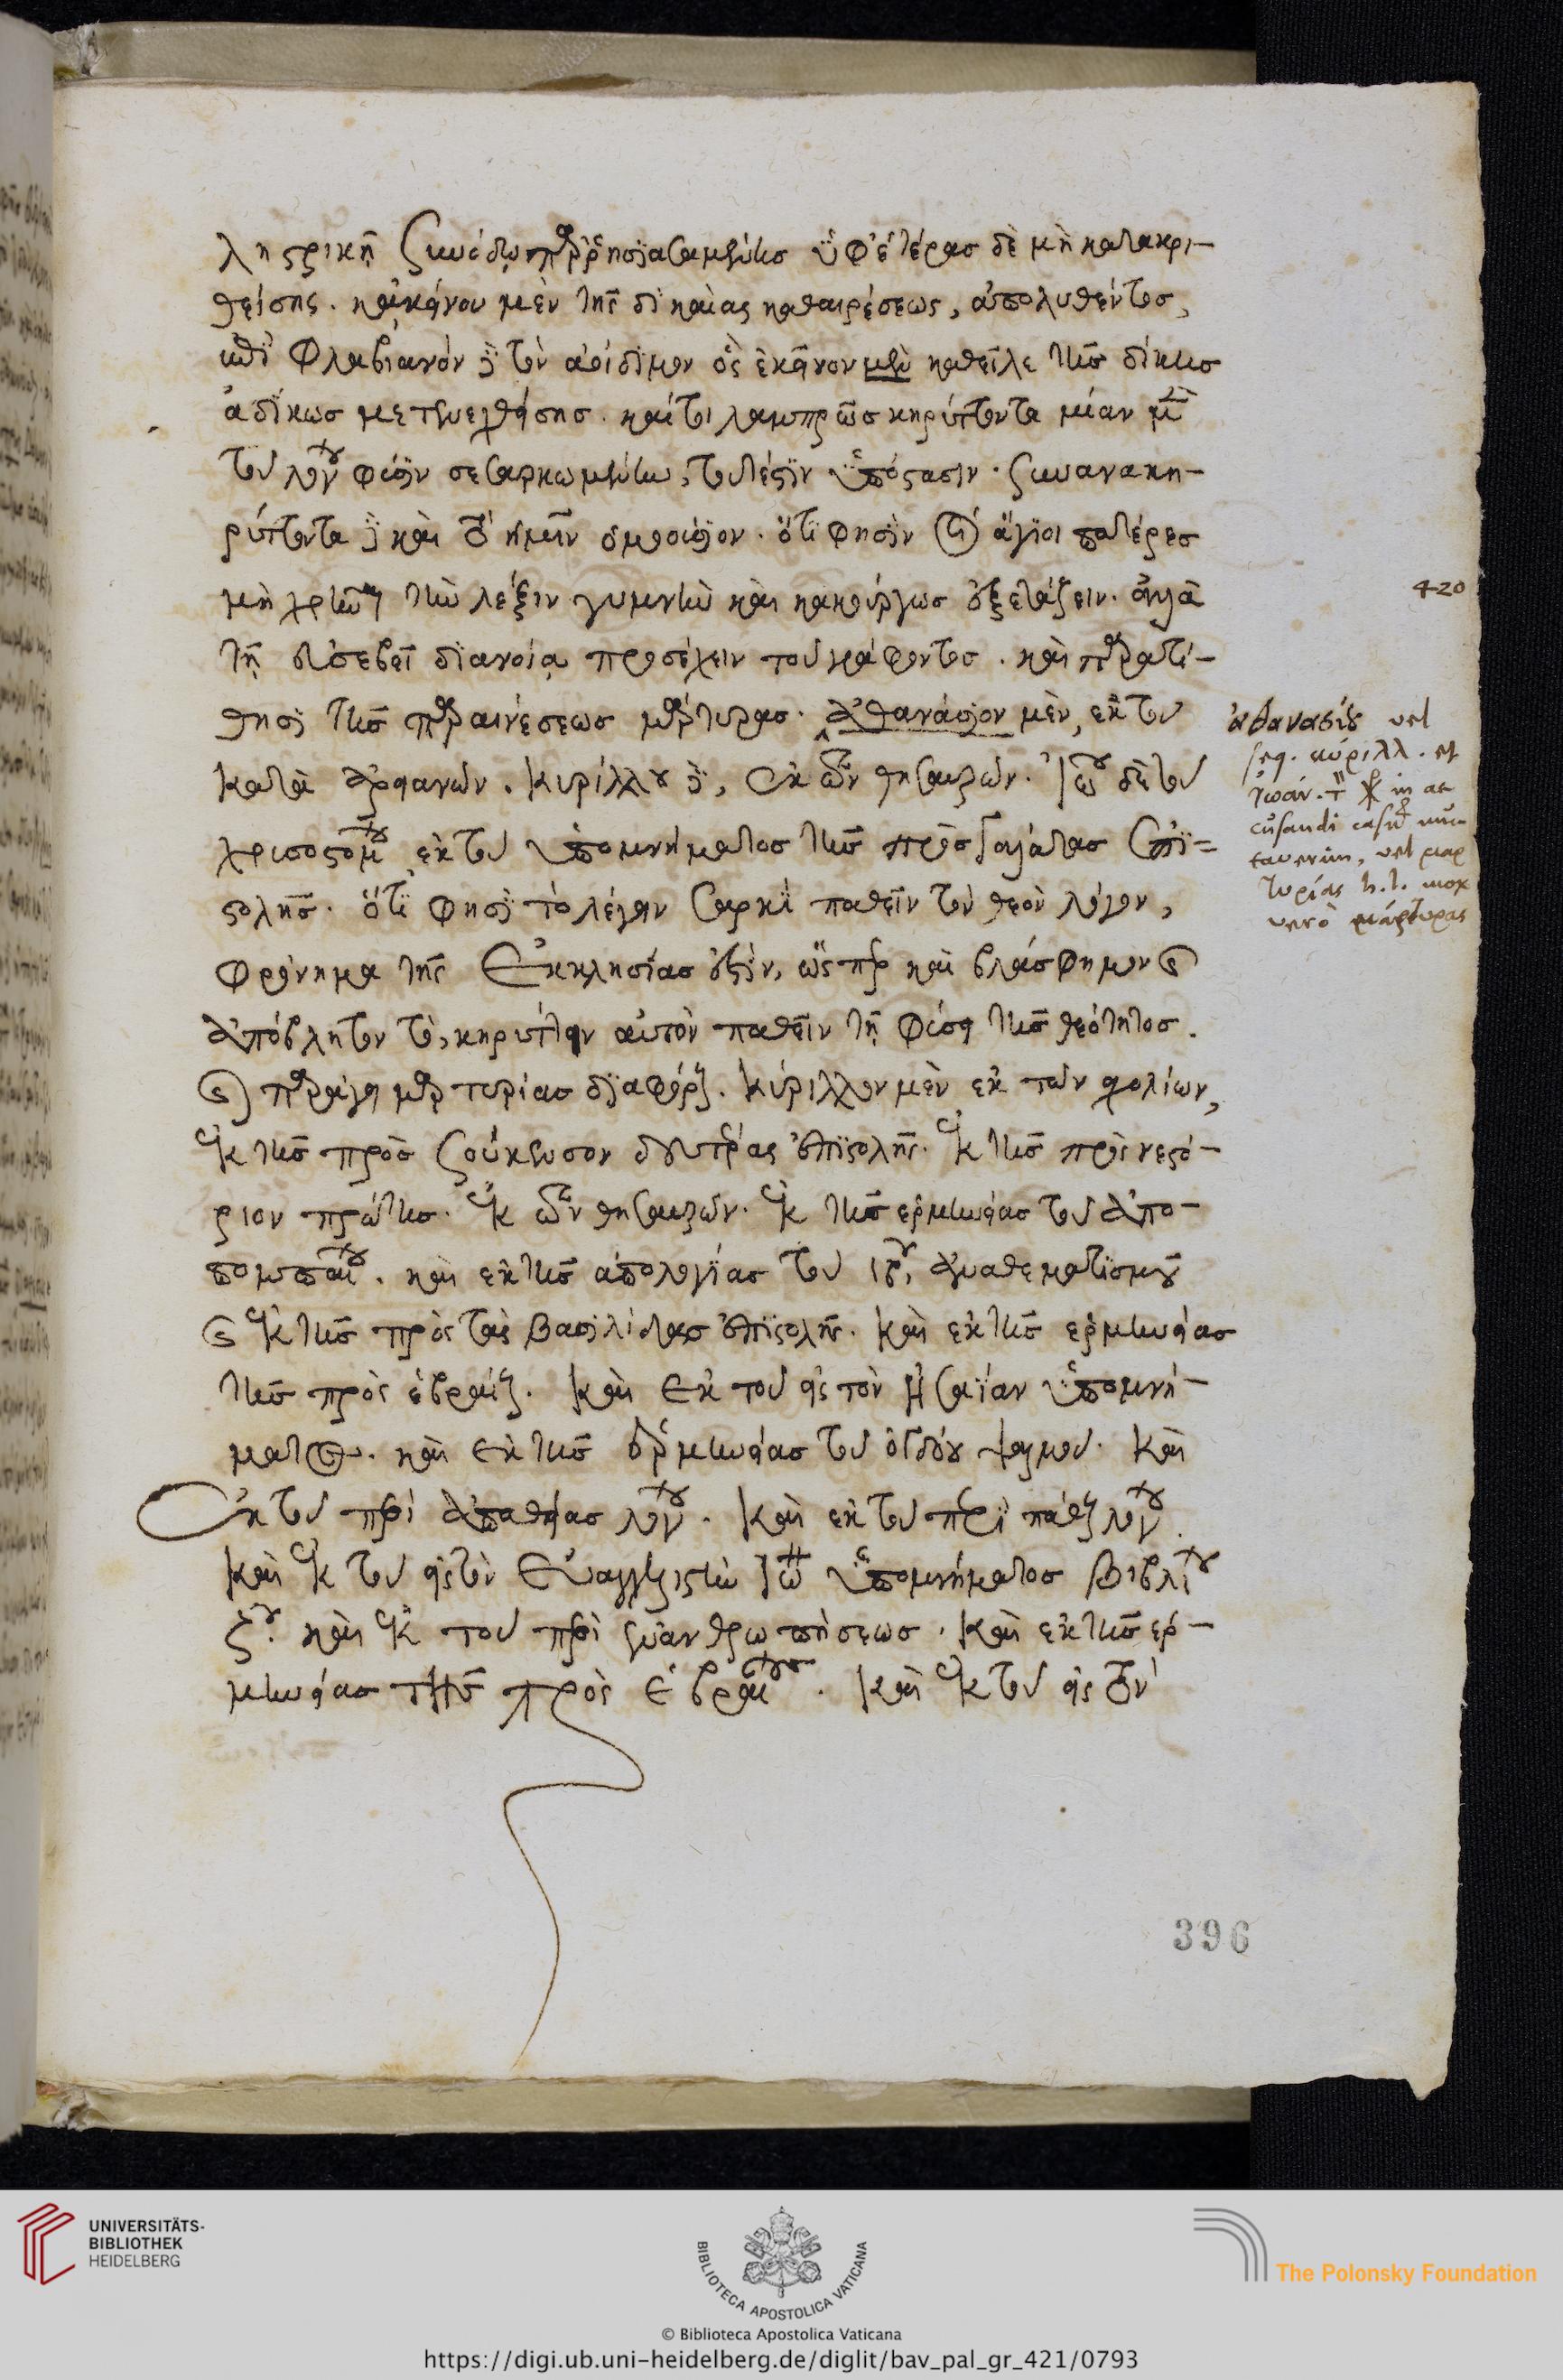 ληστρικῆ συνόδω παρρησιασαμένης ὑφ' ἑτέρας δὲ μὴ κατακρι-
θείσης. κἀκείνου μὲν τῆς δικαίας καθαιρέσεως, ἀπολυθέντος,
ἐπὶ Φλαβιανὸν δὲ τὸν ἀοίδιμον ὃς ἐκεῖνον μὲν καθεῖλε τῆς δίκης
ἀδίκως μετενεχθείσης. καίτοι λαμπρῶς κηρύττοντα μίαν μὲν
τοῦ λόγου φύσιν σεσαρκωμένην, τουτέστιν ὑπόστασιν. συνανακη-
ρύττοντα δὲ καὶ τὸ ἡμῖν ὁμοούσιον. ὅτι φησὶν οἱ ἅγιοι πατέρες
μὴ χρῆναι τὴν λέξιν γυμνὴν καὶ κακούργως ἐξετάζειν. ἀλλὰ
τῆ εὐσεβεῖ διανοία προσέχειν τοῦ γράφοντος. καὶ παρατί-
θησι τῆς παραινέσεως μάρτυρας. Ἀθανάσιον μὲν, ἐκ τοῦ
κατὰ ἀρειανῶν. κυρίλλου δὲ, ἐκ τῶν θησαυρῶν. Ἰωάννου δὲ τοῦ
χρυσοστόμου, ἐκ τοῦ ὑπομνήματος τῆς πρὸς Γαλάτας ἐπι-
στολῆς. ὅτι φησὶ τὸ λέγειν σαρκὶ παθεῖν τὸν θεὸν λόγον,
φρόνημα τῆς Ἐκκλησίας ἐστὶν, ὥσπερ καὶ βλάσφημον καὶ
ἀπόβλητον τὸ, κηρύττειν αὐτὸν παθεῖν τῆ φύσει τῆς θεότητος.
καὶ παράγει μαρτυρίας διαφόρους. κύριλλον μὲν ἐκ τῶν σχολίων,
ἐκ τῆς πρὸς σούκενσον δευτέρας ἐπιστολῆς. ἐκ τῆς πρὸς νεστό-
ριον πρώτης. ἐκ τῶν θησαυρῶν. ἐκ τῆς ἑρμηνείας τοῦ ἀπο-
πομπαίου. καὶ ἐκ τῆς ἀπολογίας τοῦ ιβ', ἀναθεματισμοῦ
καὶ ἐκ τῆς πρὸς τὰς βασιλίδας ἐπιστολῆς. καὶ ἐκ τῆς ἑρμηνείας
τῆς πρὸς ἑβραίους. καὶ ἐκ τοῦ εἰς τὸν Ἠσαΐαν ὑπομνή-
ματος. καὶ ἐκ τῆς ἑρμηνείας τοῦ ὀγδόου ψαλμοῦ. καὶ
ἐκ τοῦ περὶ ἀπαθείας λόγου. καὶ ἐκ τοῦ περὶ πάθους λόγου.
καὶ ἐκ τοῦ εἰς τὸν Εὐαγγελιστὴν Ἰωάννην ὑπομνήματος βιβλίου
ζου. καὶ ἐκ τοῦ περὶ ἐνανθρωπήσεως. καὶ ἐκ τῆς ἑρ-
μηνείας τῆς πρὸς ἑβραίους. καὶ ἐκ τοῦ εἰς τὸν
420
ἀθανασίου vel
seq. κύριλλ. et
ἰωάν. in ac
cusandi casum mu-
taverim, vel μαρ
τυρίας h.l. mox
vero μάρτυρας
396
UNIVERSITÄTS-
BIBLIOTHEK
HEIDELBERG
BIBLIOTECA APOSTOLICA VATICANA
The Polonsky Foundation
© Biblioteca Apostolica Vaticana
https://digi.ub.uni-heidelberg.de/diglit/bav_pal_gr_421/0793